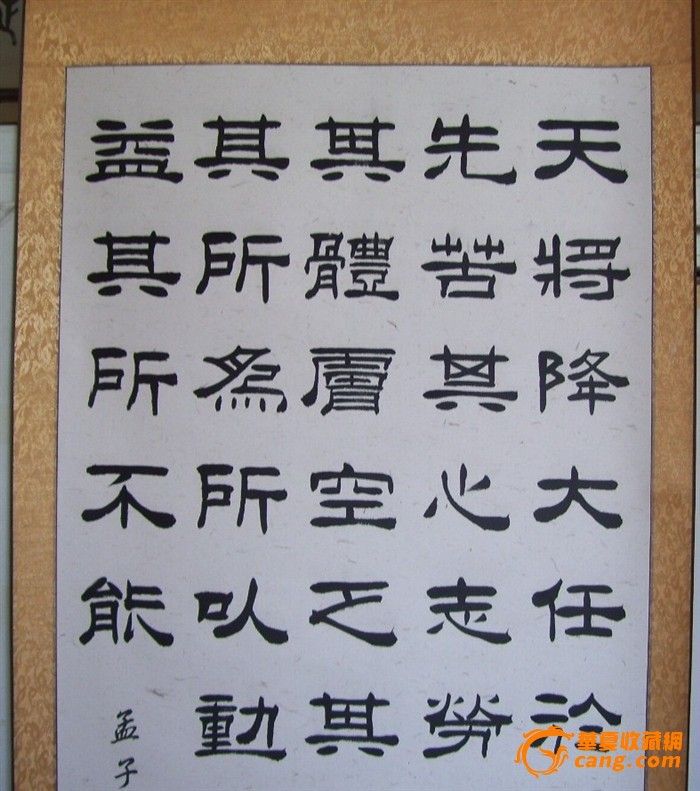 天將降大任於
先苦其心志勞
其體層空乏其
其所為所以動
益其所不能
孟子
華夏收藏網
cang.com